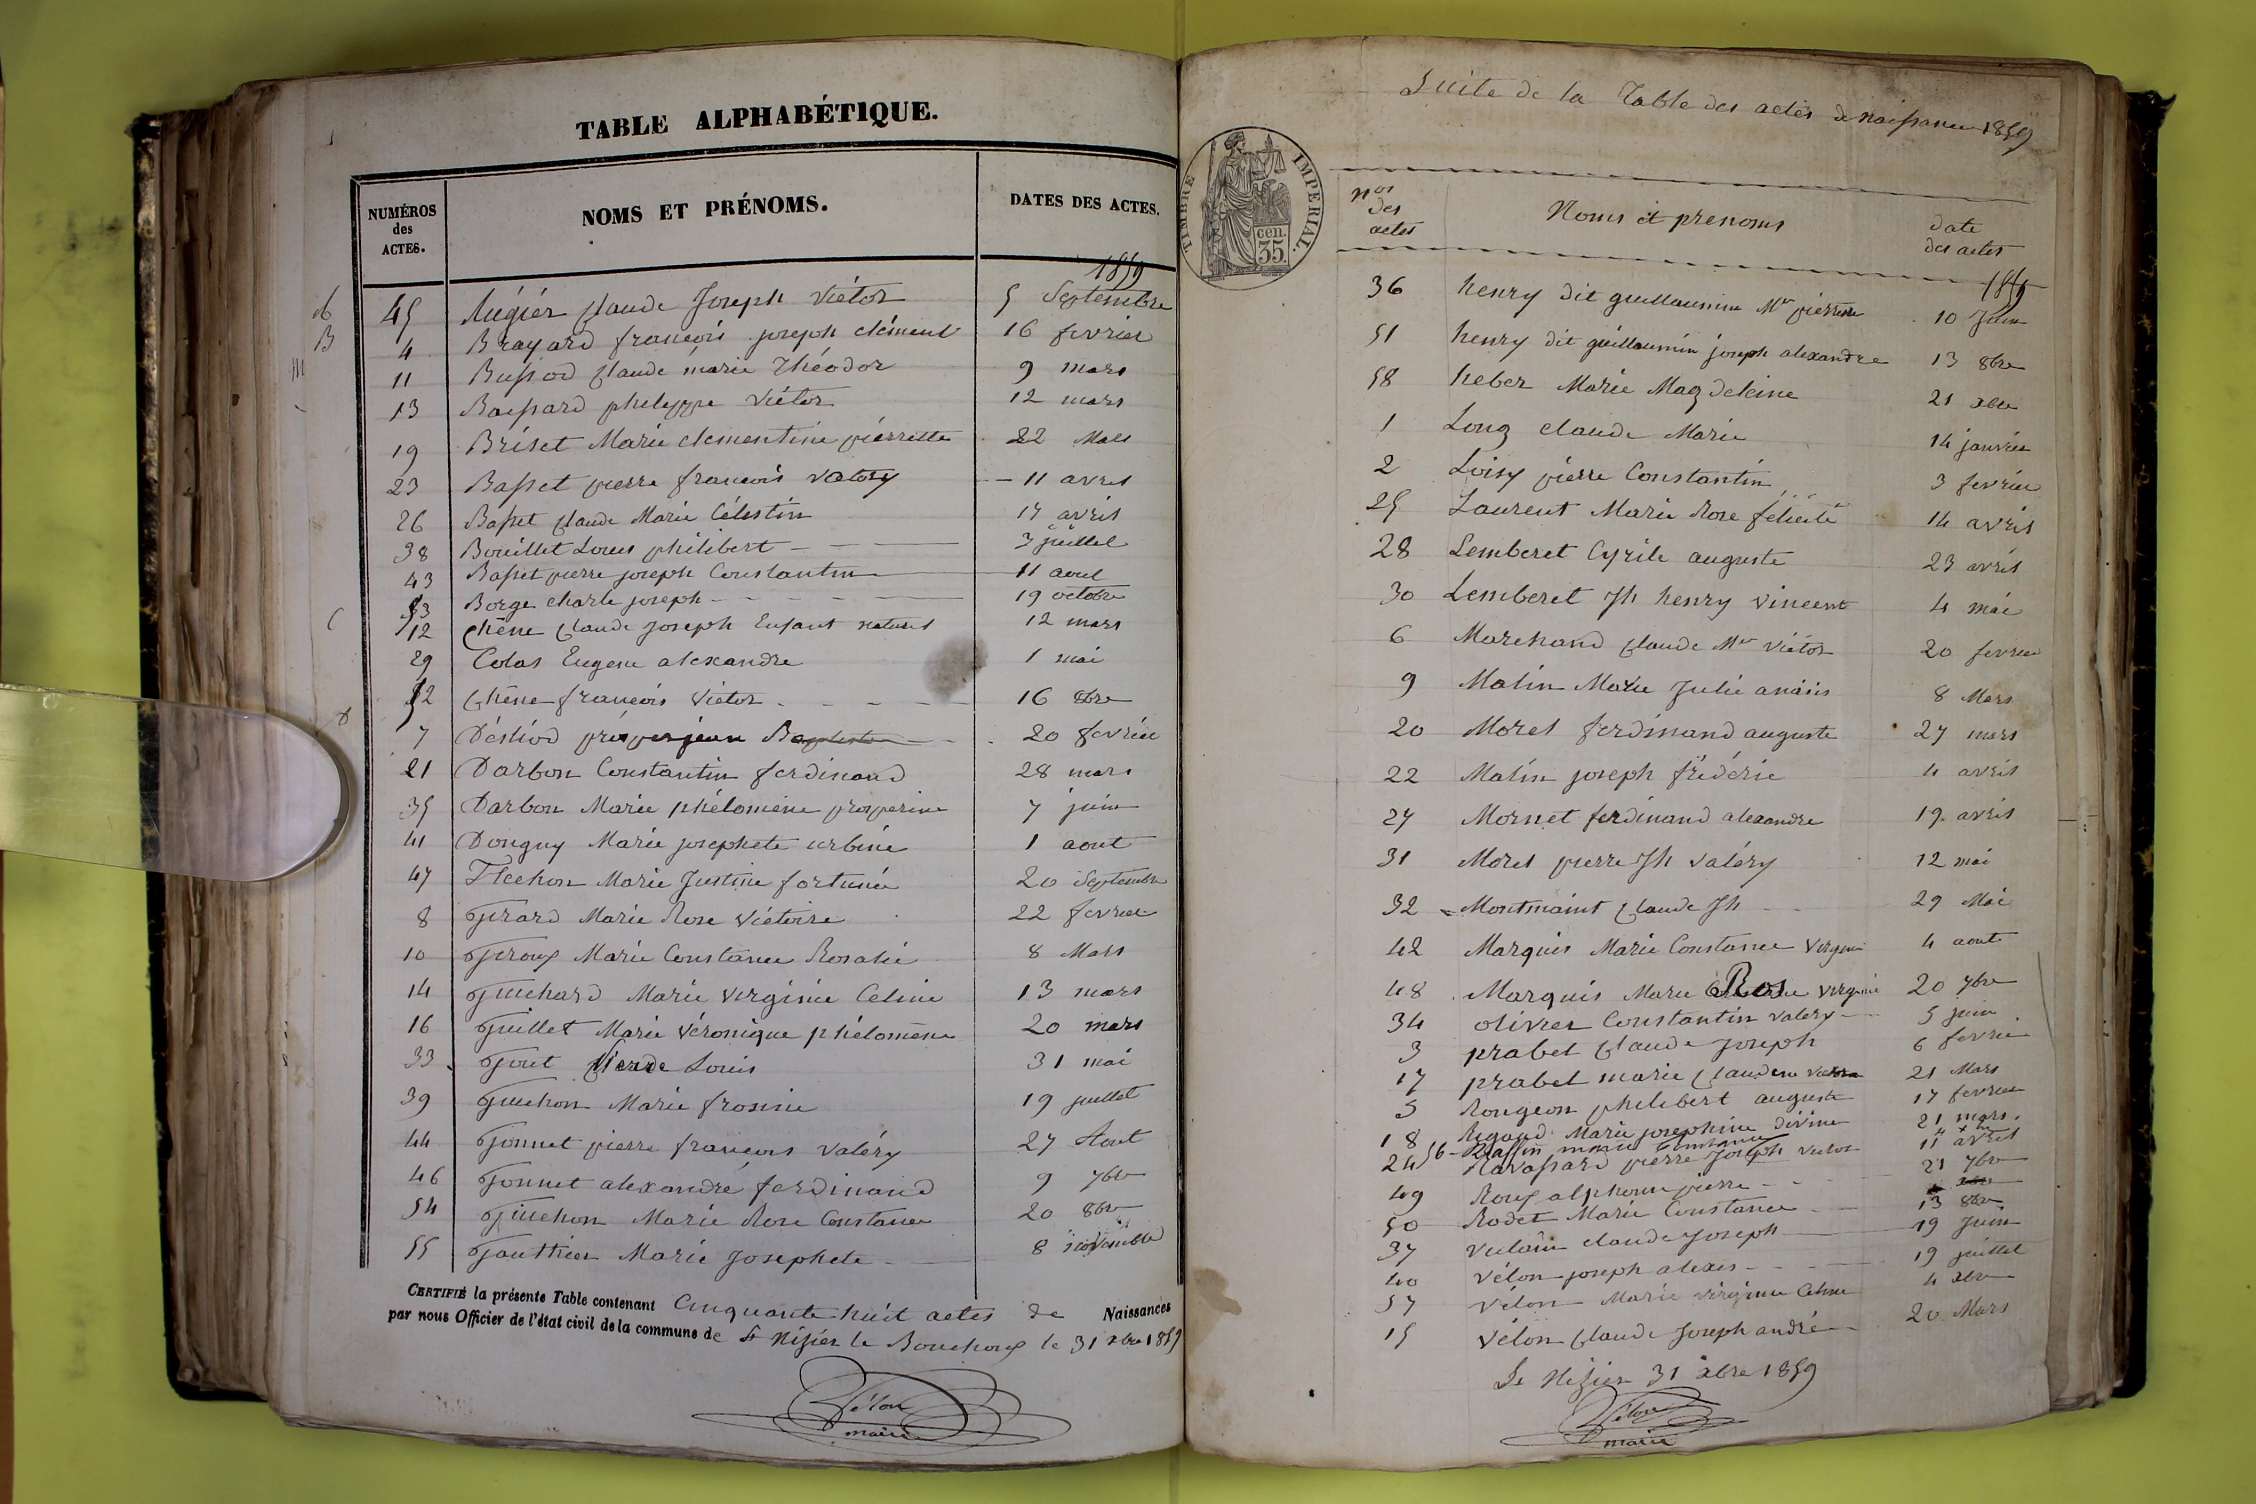 TABLE ALPHABÉTIQUE.
NUMÉROS des ACTES.
NOMS ET PRÉNOMS.
DATES DES ACTES.
1859
45 Augiér Claude Joseph Victor 5 Septembre
B 4 Brayard francois joseph clément 16 fevrier
11 Bussod Claude marie Théodor 9 mars
13 Baissard philippe Victor 12 mars
19 Briset Marie clementine piérrette 22 Mars
23 Basset pierre francois valory 11 avril
26 Basset Claude Marie Célestin 17 avril
38 Bouillet Louis philibert 3 juillet
43 Basset pierre joseph Constantin 11 aout
53 Borge charle joseph 19 octobre
C 12 Chêne Claude Joseph Enfant naturel 12 mars
29 Colas Eugene alexandre 1 mai
52 Chêne francois Victor 16 8bre
D 7 jean Baptiste 20 fevrier
21 Darbon Constantin ferdinand 28 mars
35 Darbon Marie phélomène prosperine 7 juin
41 Donguy Marie josephete urbine 1 aout
47 Flechon Marie Justine fortunée 20 Septembre
8 Girard Marie Rose Victoire 22 fevrier
10 Giroux Marie Constance Rosalie 8 Mars
14 Guichard Marie virginie Celine 13 mars
16 Guillet Marie véronique phélomène 20 mars
33 Gout Claude Louis 31 mai
39 Guichon Marie frosine 19 juillet
44 Gonnet pierre francois valéry 27 Aout
46 Gonnet alexandre ferdinand 9 7bre
54 Guichon Marie Rose Constance 20 8bre
55 Gauthier Marie Josephete 8 novembre
CERTIFIÉ la présente Table contenant Cinquante huit actes de Naissances
par nous Officier de l'état civil de la commune de St Nizier le Bouchoux le 31 xbre 1859
Vélon
maire
Suite de la Table des actes de naissance 1859
TIMBRE IMPERIAL.
cen.
35.
nos des actes
Noms et prenoms
date des actes
1859
36 henry dit guillaumin Mie pierrette 10 Juin
51 henry dit guillaumin joseph alexandre 13 8bre
58 heber Marie Magdeleine 21 xbre
1 Long claude Marie 14 janvier
2 Loisy pierre Constantin 3 fevrier
25 Laurent Marie Rose félicité 14 avril
28 Lemberet Cyrile auguste 23 avril
30 Lemberet Jh henry vincent 4 mai
6 Marchand Claude Mie Victor 20 fevrier
9 Malin Marie Julie anaïs 8 Mars
20 Morel ferdinand auguste 27 mars
22 Malin joseph frédéric 4 avril
27 Mornet ferdinand alexandre 19 avril
31 Morel pierre Jh valéry 12 mai
32 Montmaint Claude Jh 29 Mai
42 Marquis Marie Constance virginie 4 aout
48 Marquis Marie Ros virginie 20 7bre
34 olivier Constantin valery 5 juin
3 prabel Claude Joseph 6 fevrier
17 prabel marie 21 Mars
5 Rongeon philibert auguste 17 fevrier
18 Rigaud Marie josephine divine 21 mars
56 Raffin marie Constance 4 xbre
24 Ravassard pierre Joseph victor 11 avril
49 Roux alphonse pierre 21 7bre
50 Rodet Marie Constance 13 8bre
37 Vulain claude Joseph 19 Juin
40 Vélon joseph alexis 19 juillet
57 Vélon Marie virginie Celine 4 xbre
15 Vélon Claude Joseph andré 20 Mars
St Nizier 31 xbre 1859
Vélon
maire